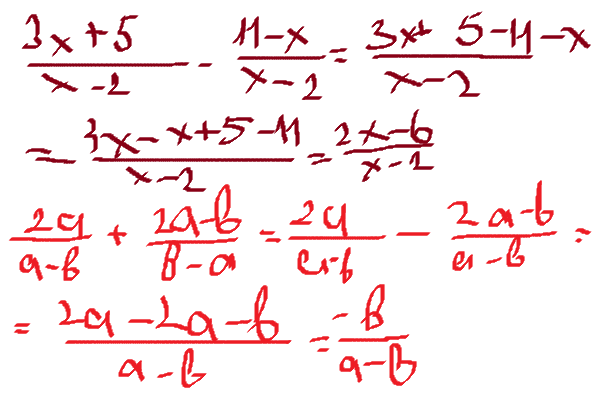 (3x+5)/(x-2) - (11-x)/(x-2) = (3x+5-11-x)/(x-2)
= (3x-x+5-11)/(x-2) = (2x-6)/(x-2)
(2a)/(a-b) + (2a-b)/(b-a) = (2a)/(a-b) - (2a-b)/(a-b) =
= (2a-2a-b)/(a-b) = (-b)/(a-b)